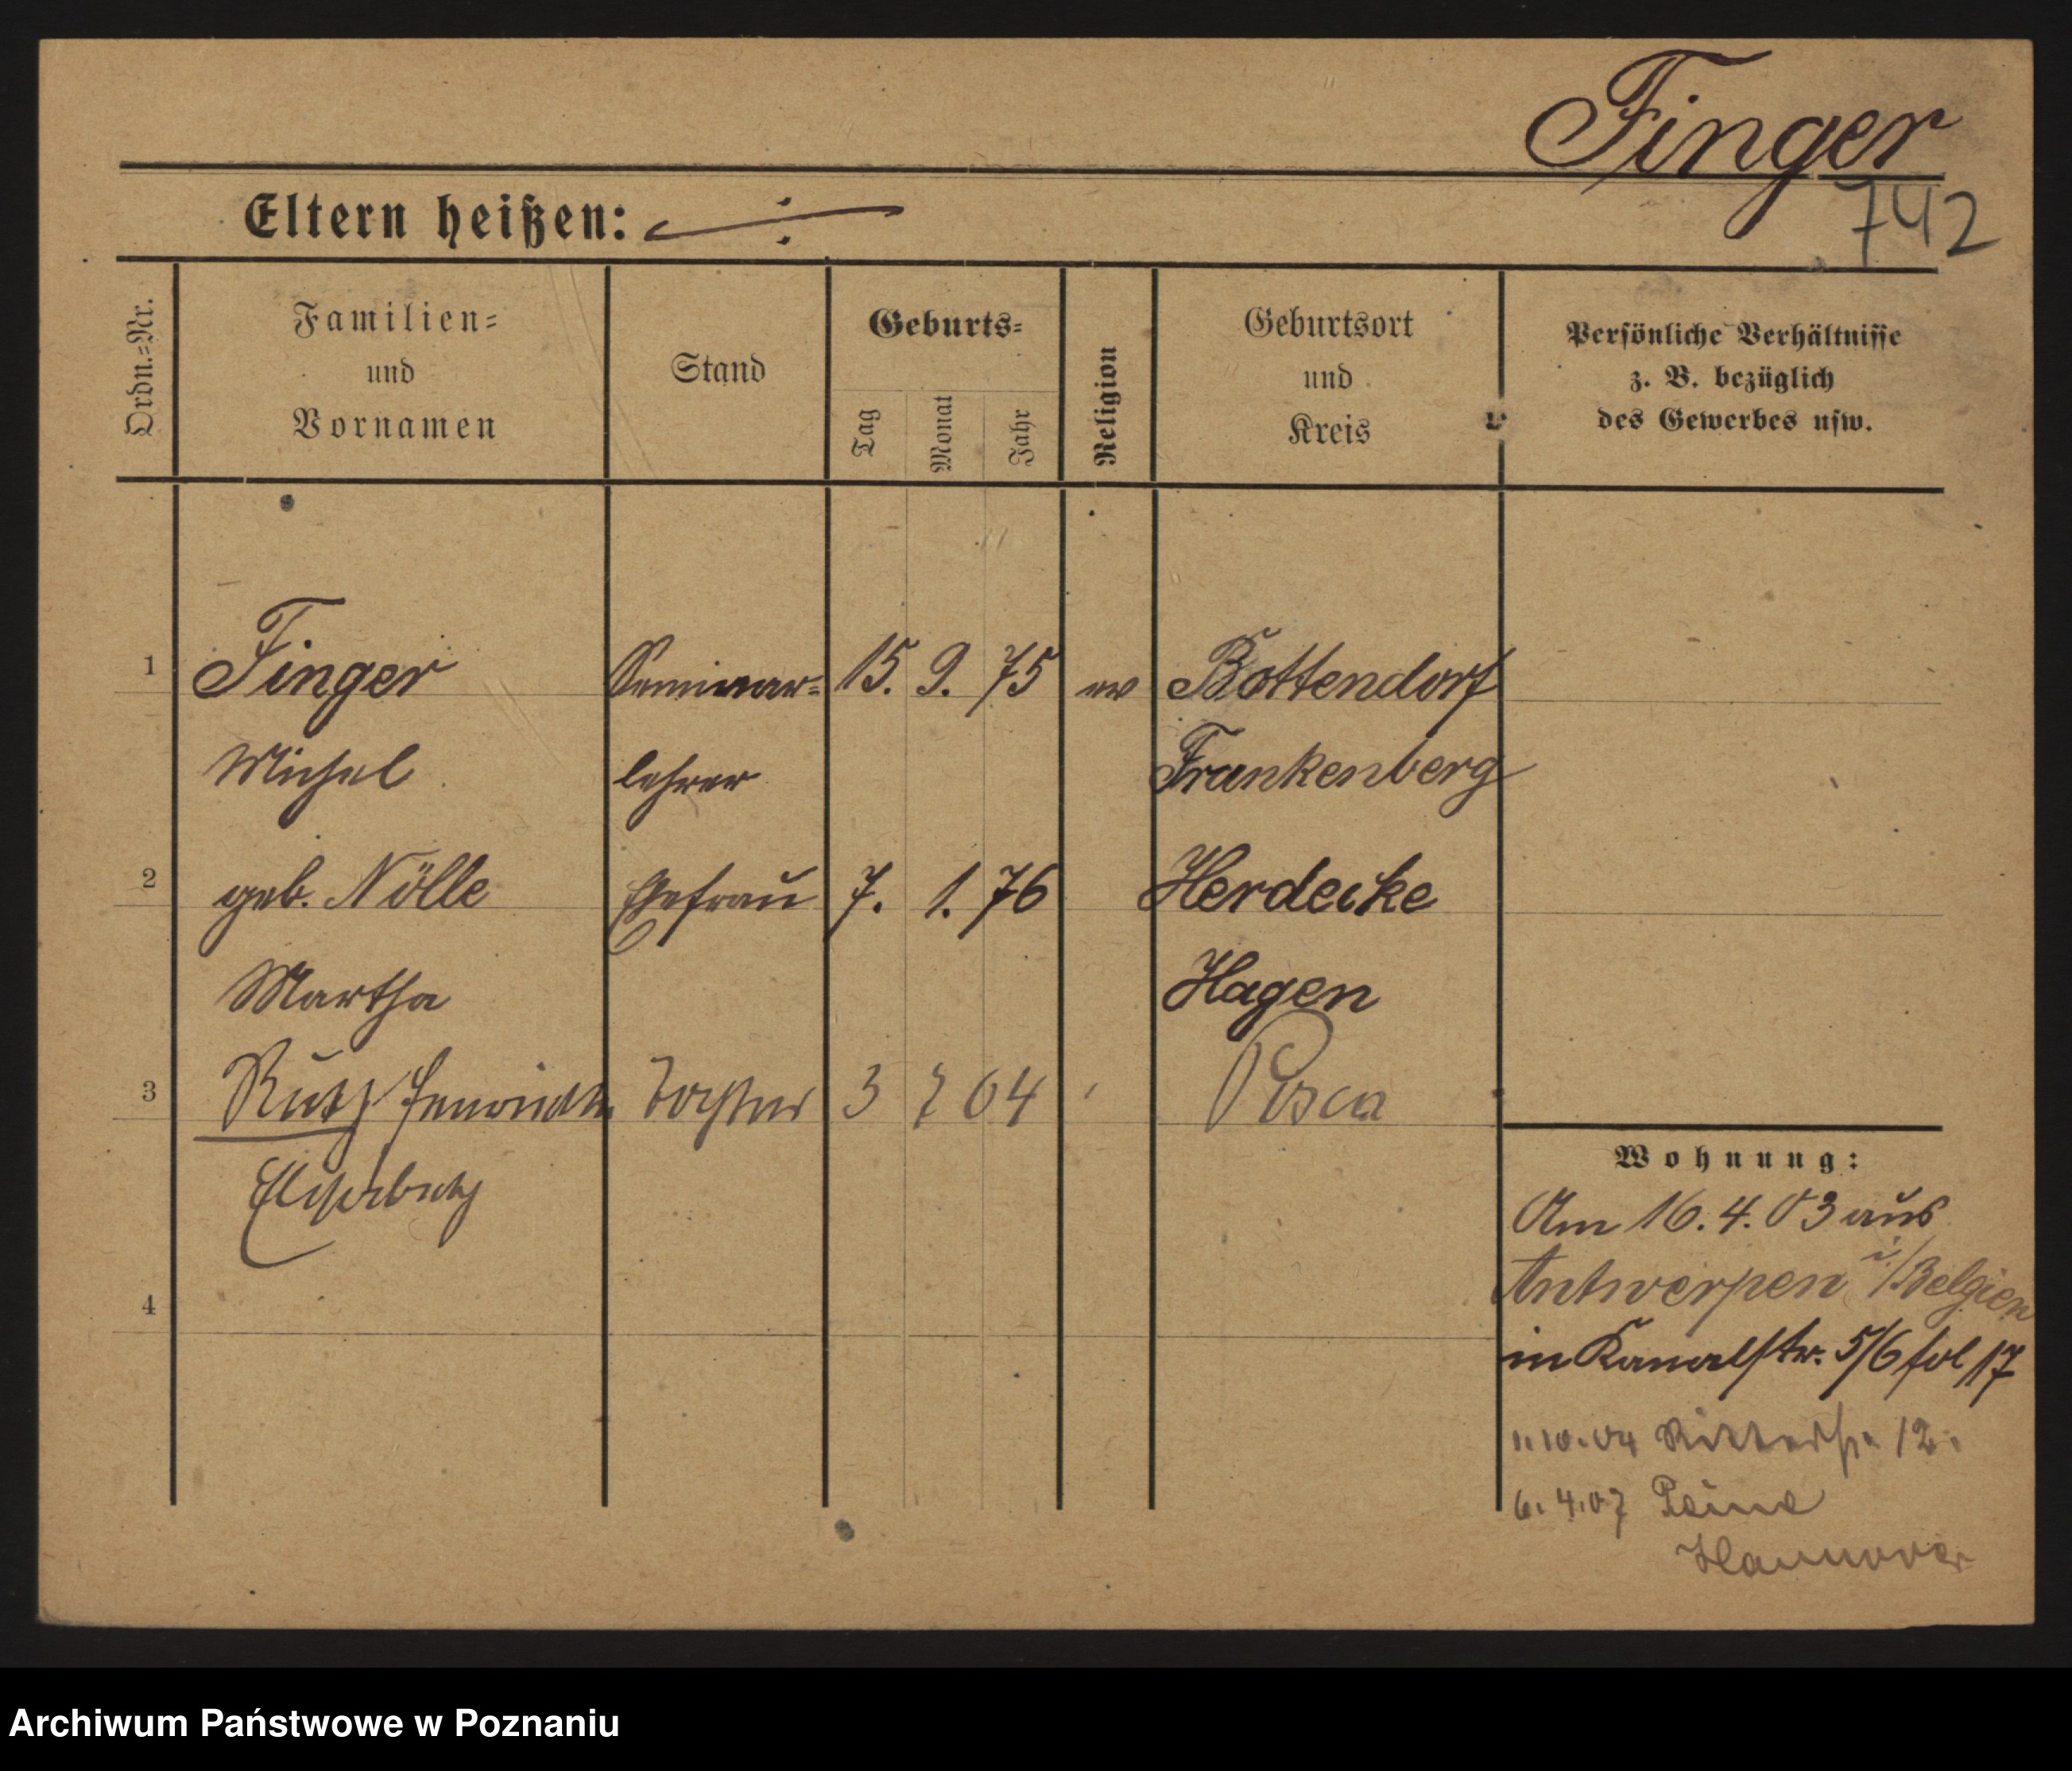 Finger
742
Eltern heißen:
Ordn.=Nr.
Familien=
und
Vornamen
Stand
Geburts=
Tag
Monat
Jahr
Religion
Geburtsort
und
Kreis
Persönliche Verhältnisse
z. B. bezüglich
des Gewerbes usw.
1 Finger Seminar= 15. 9. 75 ev Bottendorf
Michel lehrer Frankenberg
2 geb. Nölle Ehefrau 7. 1. 76 Herdecke
Martha Hagen
3 Ruth Henriette Tochter 3 7 04 Posen
Elisabeth
4
Wohnung:
Am 16. 4. 03 aus
Antwerpen i/Belgien
in Kanalstr. 5/6 fol 17
1.10.04 Ritterstr. 12.
6.4.07 Peine
Hannover
Archiwum Państwowe w Poznaniu